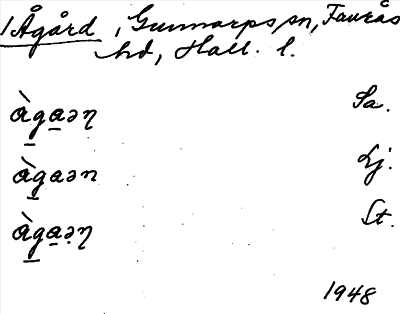 1 Ågård, Gunnarps sn, Faurås
hd, Hall. l.
àgaəɳ Sa.
àgaən Lj.
àgaə̣ɳ St.
1948